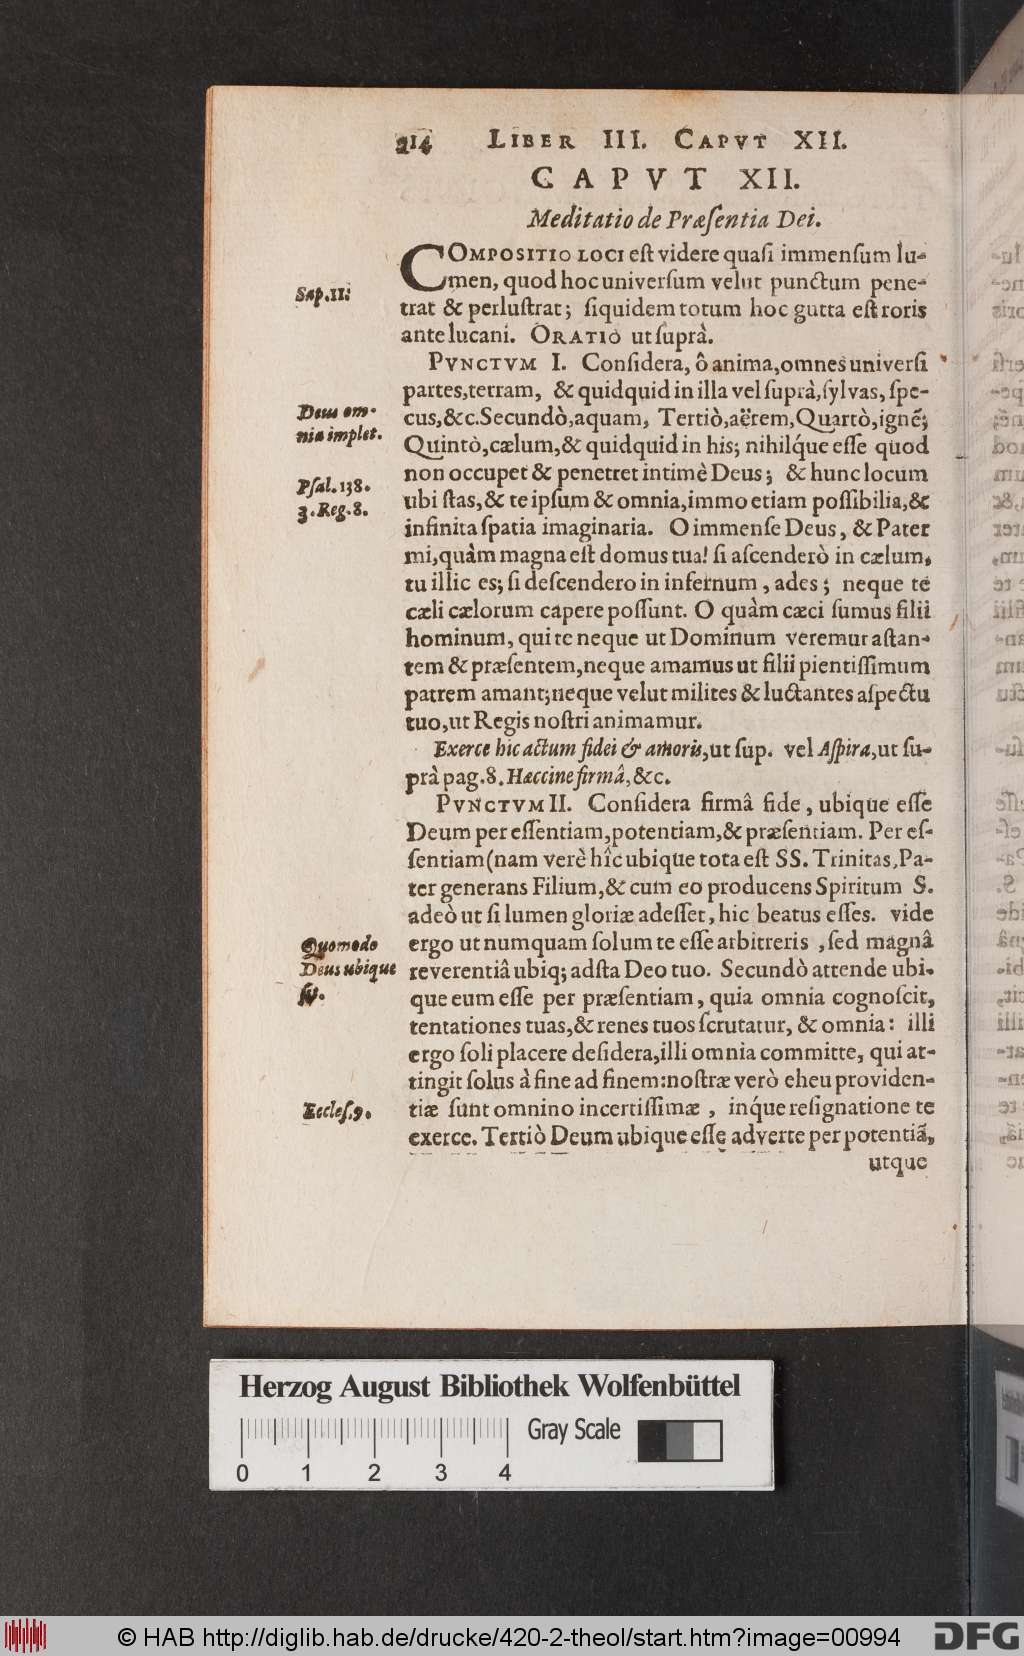 214 LIBER III. CAPVT XII.
CAPVT XII.
Meditatio de Præſentia Dei.
COMPOSITIO LOCI eſt videre quaſi immenſum lu-
men, quod hoc univerſum velut punctum pene-
Sap. 11:
trat & perluſtrat; ſiquidem totum hoc gutta eſt roris
ante lucani. ORATIO ut ſuprà.
PVNCTVM I. Conſidera, ô anima, omnes univerſi
partes, terram, & quidquid in illa vel ſuprà, ſylvas, ſpe-
Deus om-
cus, &c. Secundò, aquam, Tertiò, aërem, Quartò, ignẽ;
nia implet.
Quintò, cælum, & quidquid in his; nihilq́ue eſſe quod
non occupet & penetret intimè Deus; & hunc locum
Pſal. 138.
ubi ſtas, & te ipſum & omnia, immo etiam poſſibilia, &
3. Reg. 8.
infinita ſpatia imaginaria. O immenſe Deus, & Pater
mi, quàm magna eſt domus tua! ſi aſcenderò in cælum,
tu illic es; ſi deſcendero in infernum, ades; neque te
cæli cælorum capere poſſunt. O quàm cæci ſumus filii
hominum, qui te neque ut Dominum veremur aſtan-
tem & præſentem, neque amamus ut filii pientiſſimum
patrem amant; neque velut milites & luctantes aſpectu
tuo, ut Regis noſtri animamur.
Exerce hic actum fidei & amoris, ut ſup. vel Aſpira, ut ſu-
prà pag. 8. Hæccine firmâ, &c.
PVNCTVM II. Conſidera firmâ fide, ubique eſſe
Deum per eſſentiam, potentiam, & præſentiam. Per eſ-
ſentiam (nam verè hîc ubique tota eſt SS. Trinitas, Pa-
ter generans Filium, & cum eo producens Spiritum S.
adeò ut ſi lumen gloriæ adeſſet, hic beatus eſſes. vide
Quomodo
ergo ut numquam ſolum te eſſe arbitreris, ſed magnâ
Deus ubique
reverentiâ ubiq; adſta Deo tuo. Secundò attende ubi-
ſit.
que eum eſſe per præſentiam, quia omnia cognoſcit,
tentationes tuas, & renes tuos ſcrutatur, & omnia: illi
ergo ſoli placere deſidera, illi omnia committe, qui at-
tingit ſolus à fine ad finem: noſtræ verò eheu providen-
Eccleſ. 9.
tiæ ſunt omnino incertiſſimæ, inq́ue reſignatione te
exerce. Tertiò Deum ubique eſſe adverte per potentiã,
utque
Herzog August Bibliothek Wolfenbüttel
Gray Scale
0 1 2 3 4
© HAB http://diglib.hab.de/drucke/420-2-theol/start.htm?image=00994
DFG